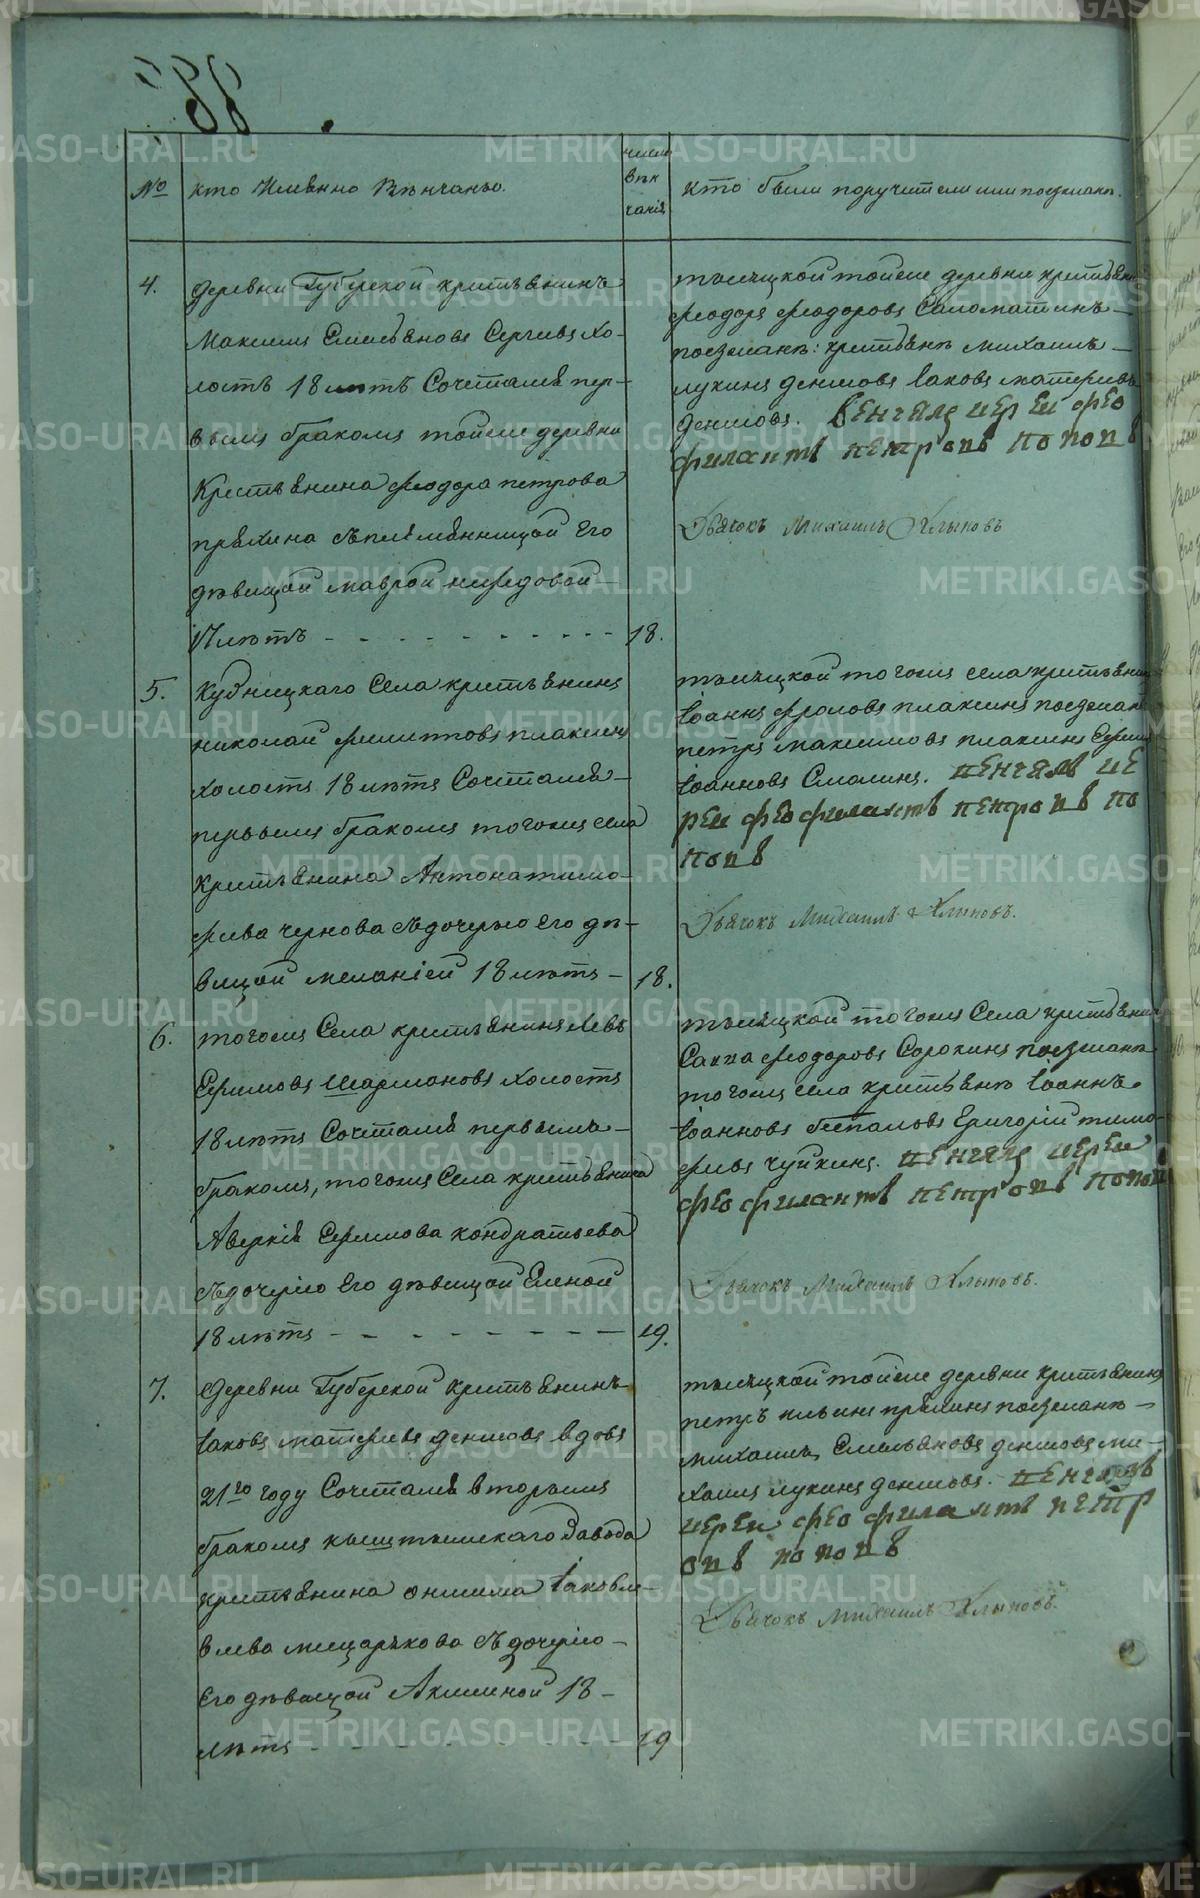 №
кто Имѣнно Вѣнчаны.
число
вѣн
чанія
кто были поручители или поезжанѣ.
4.
деревни Губерской крестьянинъ
Максимъ Емельяновъ Сергѣевъ Хо-
лостъ 18 лѣтъ Сочетался пер-
вымъ бракомъ тойже деревни
Крестьянина Феодора петрова
съ племянницой Его
дѣвицой маврой
17 лѣтъ
18.
тысяцкой тойже деревни крестьянинъ
Феодоръ Феодоровъ Саломатинъ
поезжанѣ: крестьянѣ михаилъ
лукинъ денисовъ Іаковъ матфѣевъ
денисовъ. вѣнчалъ иерей фео
филактъ петровъ поповъ
Дьячокъ Михаилъ Хлыновъ
5.
Села крестьянинъ
николай филипповъ плаксинъ
холостъ 18 лѣтъ Сочетался
первымъ бракомъ тогожъ села
крестьянина Антона тимо-
фѣева чернова съ дочерью его дѣ-
вицой меланіей 18 лѣтъ
18.
тысяцкой тогожъ села крестьянинъ
Іоаннъ фроловъ плаксинъ поезжанѣ
петръ максимовъ плаксинъ
Іоанновъ Смолинъ. вѣнчалъ ие
рей феофилактъ петровъ по
повъ
Дьячокъ Михаилъ Хлыновъ.
6.
тогожъ Села крестьянинъ Левъ
Ефимовъ Шармановъ Холостъ
18 лѣтъ Сочетался первымъ
бракомъ, тогожъ Села крестьянина
Аверкія Ефимова кондратьева
съ дочерью Его дѣвицой Еленой
18 лѣтъ
19.
тысяцкой тогожъ Села крестьянинъ
Савва Феодоровъ Сорокинъ поезжанѣ
тогожъ села крестьянѣ Іоаннъ
Іоанновъ беспаловъ Григорій тимо-
фѣевъ чуйкинъ. вѣнчалъ иерей
феофилактъ петровъ поповъ
Дьячокъ Михаилъ Хлыновъ.
7.
Деревни Губерской крестьянинъ
Іаковъ матфѣевъ денисовъ вдовъ
21го году Сочетался вторымъ
бракомъ кыштымскаго Завода
крестьянина онисима Іаковле-
влева мещарякова съ дочерью
Его дѣвицой Акилиной 18
лѣтъ
19
тысяцкой тойже деревни крестьянинъ
петръ ильинъ пряхинъ поезжанѣ
михаилъ Емельяновъ денисовъ ми-
хаилъ лукинъ денисовъ. вѣнчалъ
иерей феофилактъ петр
овъ поповъ
Дьячокъ Михаилъ Хлыновъ.
METRIKI.GASO-URAL.RU